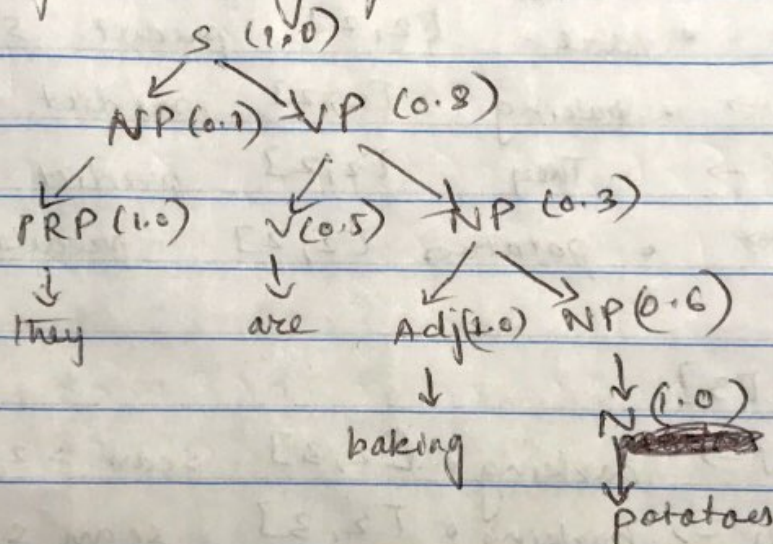 S (1.0)
NP (0.1) VP (0.8)
PRP (1.0) V (0.5) NP (0.3)
they are Adj (1.0) NP (0.6)
baking N (1.0)
potatoes